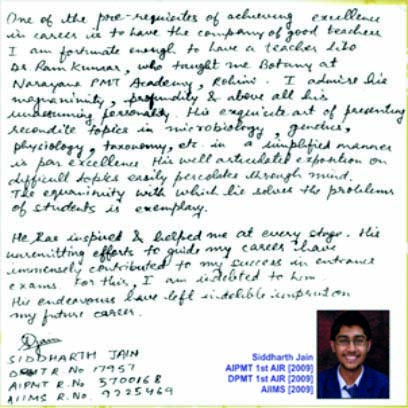 One of the pre-requisites of achieving excellence
in career is to have the company of good teachers
I am fortunate enough to have a teacher like
Dr. Ram Kumar, who taught me Botany at
Narayana PMT Academy, Rohini. I admire his
magnanimity, profundity & above all his
unassuming personality. His exquisite art of presenting
recondite topics in microbiology, genetics,
physiology, taxonomy, etc. in a simplified manner
is par excellence. His well articulated exposition on
difficult topics easily percolates through mind.
The equanimity with which he solves the problems
of students is exemplary.
He has inspired & helped me at every stage. His
unremitting efforts to guide my career have
immensely contributed to my success in entrance
exams. For this, I am indebted to him.
His endeavours have left indelible imprint on
my future career.
SIDDHARTH JAIN
DPMT R. No 17957
AIPMT R. No 5700168
AIIMS R. No. 9225469
Siddharth Jain
AIPMT 1st AIR [2009]
DPMT 1st AIR [2009]
AIIMS [2009]